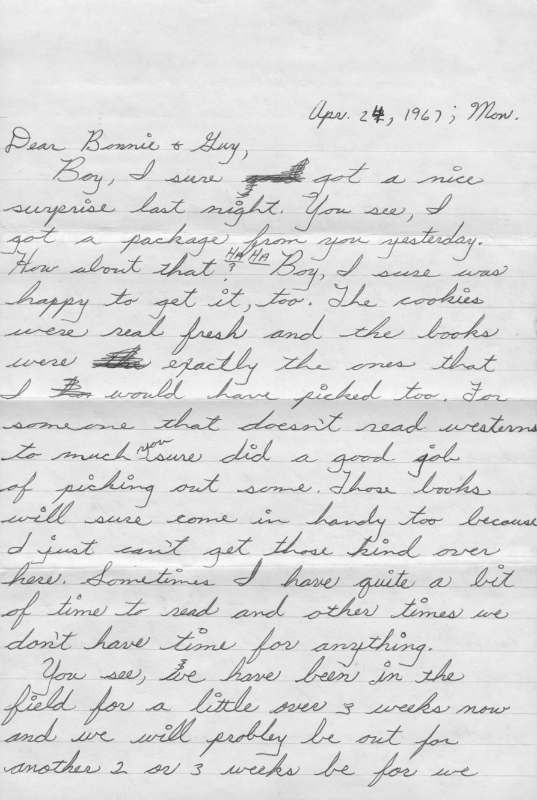 Apr. 24, 1967; Mon.
Dear Bonnie & Guy,
Boy, I sure got a nice
surprise last night. You see, I
got a package from you yesterday.
How about that? HA HA Boy, I sure was
happy to get it, too. The cookies
were real fresh and the books
were exactly the ones that
I would have picked too. For
someone that doesn't read westerns
to much you sure did a good job
of picking out some. Those books
will sure come in handy too because
I just can't get those kind over
here. Sometimes I have quite a bit
of time to read and other times we
don't have time for anything.
You see, we have been in the
field for a little over 3 weeks now
and we will probley be out for
another 2 or 3 weeks be for we